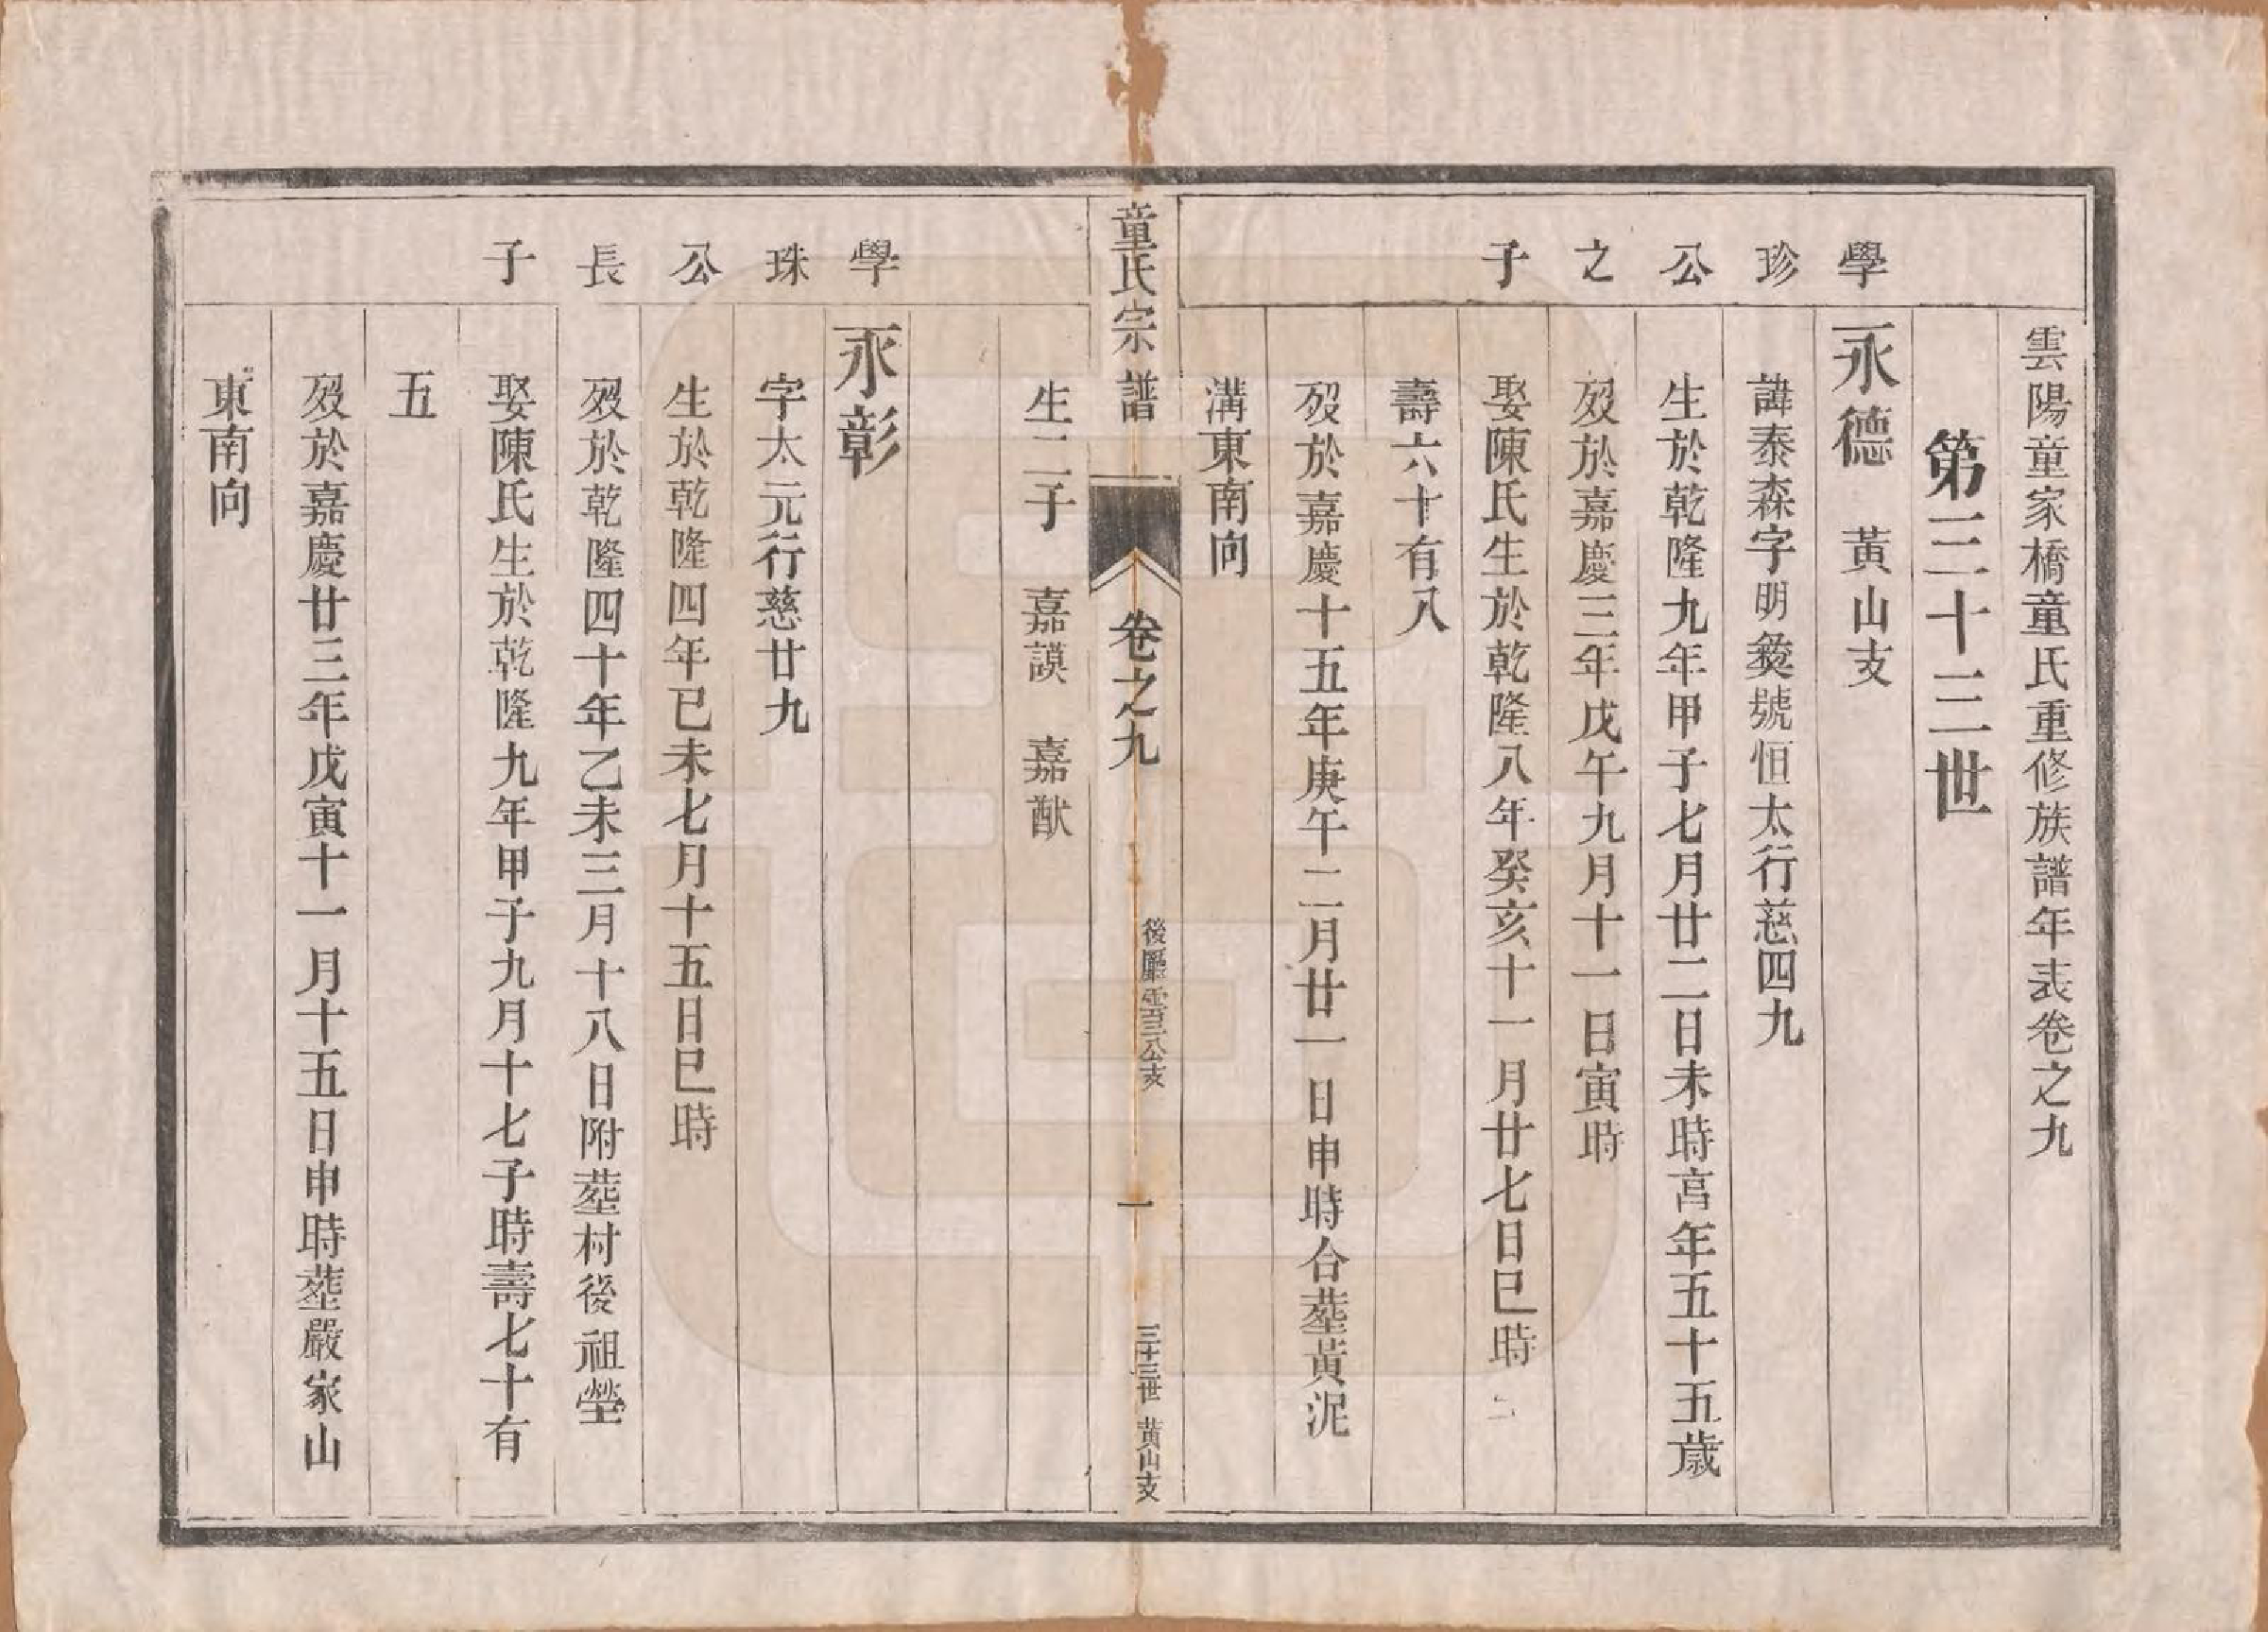 雲陽童家橋童氏重修族譜年表卷之九
第三十三世
學珍公之子
永德 黃山支
諱泰森字明燹號恒太行慈四九
生於乾隆九年甲子七月廿二日未時享年五十五歲
歿於嘉慶三年戊午九月十一日寅時
娶陳氏生於乾隆八年癸亥十一月廿七日巳時
壽六十有八
歿於嘉慶十五年庚午二月廿一日申時合塟黃泥
溝東南向
童氏宗譜
卷之九
後雲三公支
一
三十三世 黃山支
生二子 嘉謨 嘉猷
學珠公長子
永彰
字太元行慈廿九
生於乾隆四年己未七月十五日巳時
歿於乾隆四十年乙未三月十八日附塟村後祖塋
娶陳氏生於乾隆九年甲子九月十七子時壽七十有
五
歿於嘉慶廿三年戊寅十一月十五日申時塟嚴家山
東南向